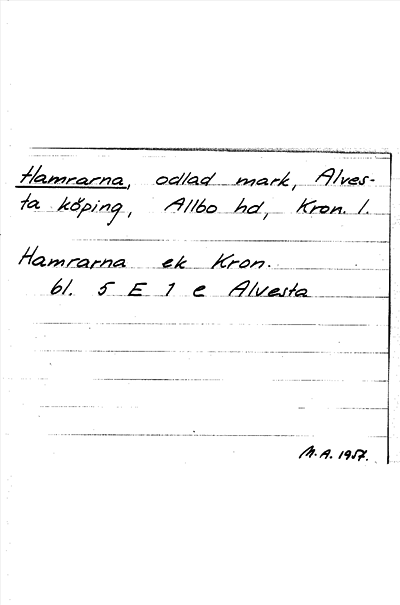 Hamrarna, odlad mark, Alves-
ta köping, Allbo hd, Kron. l.
Hamrarna ek Kron.
bl. 5 E 1 e Alvesta
M.A. 1957.